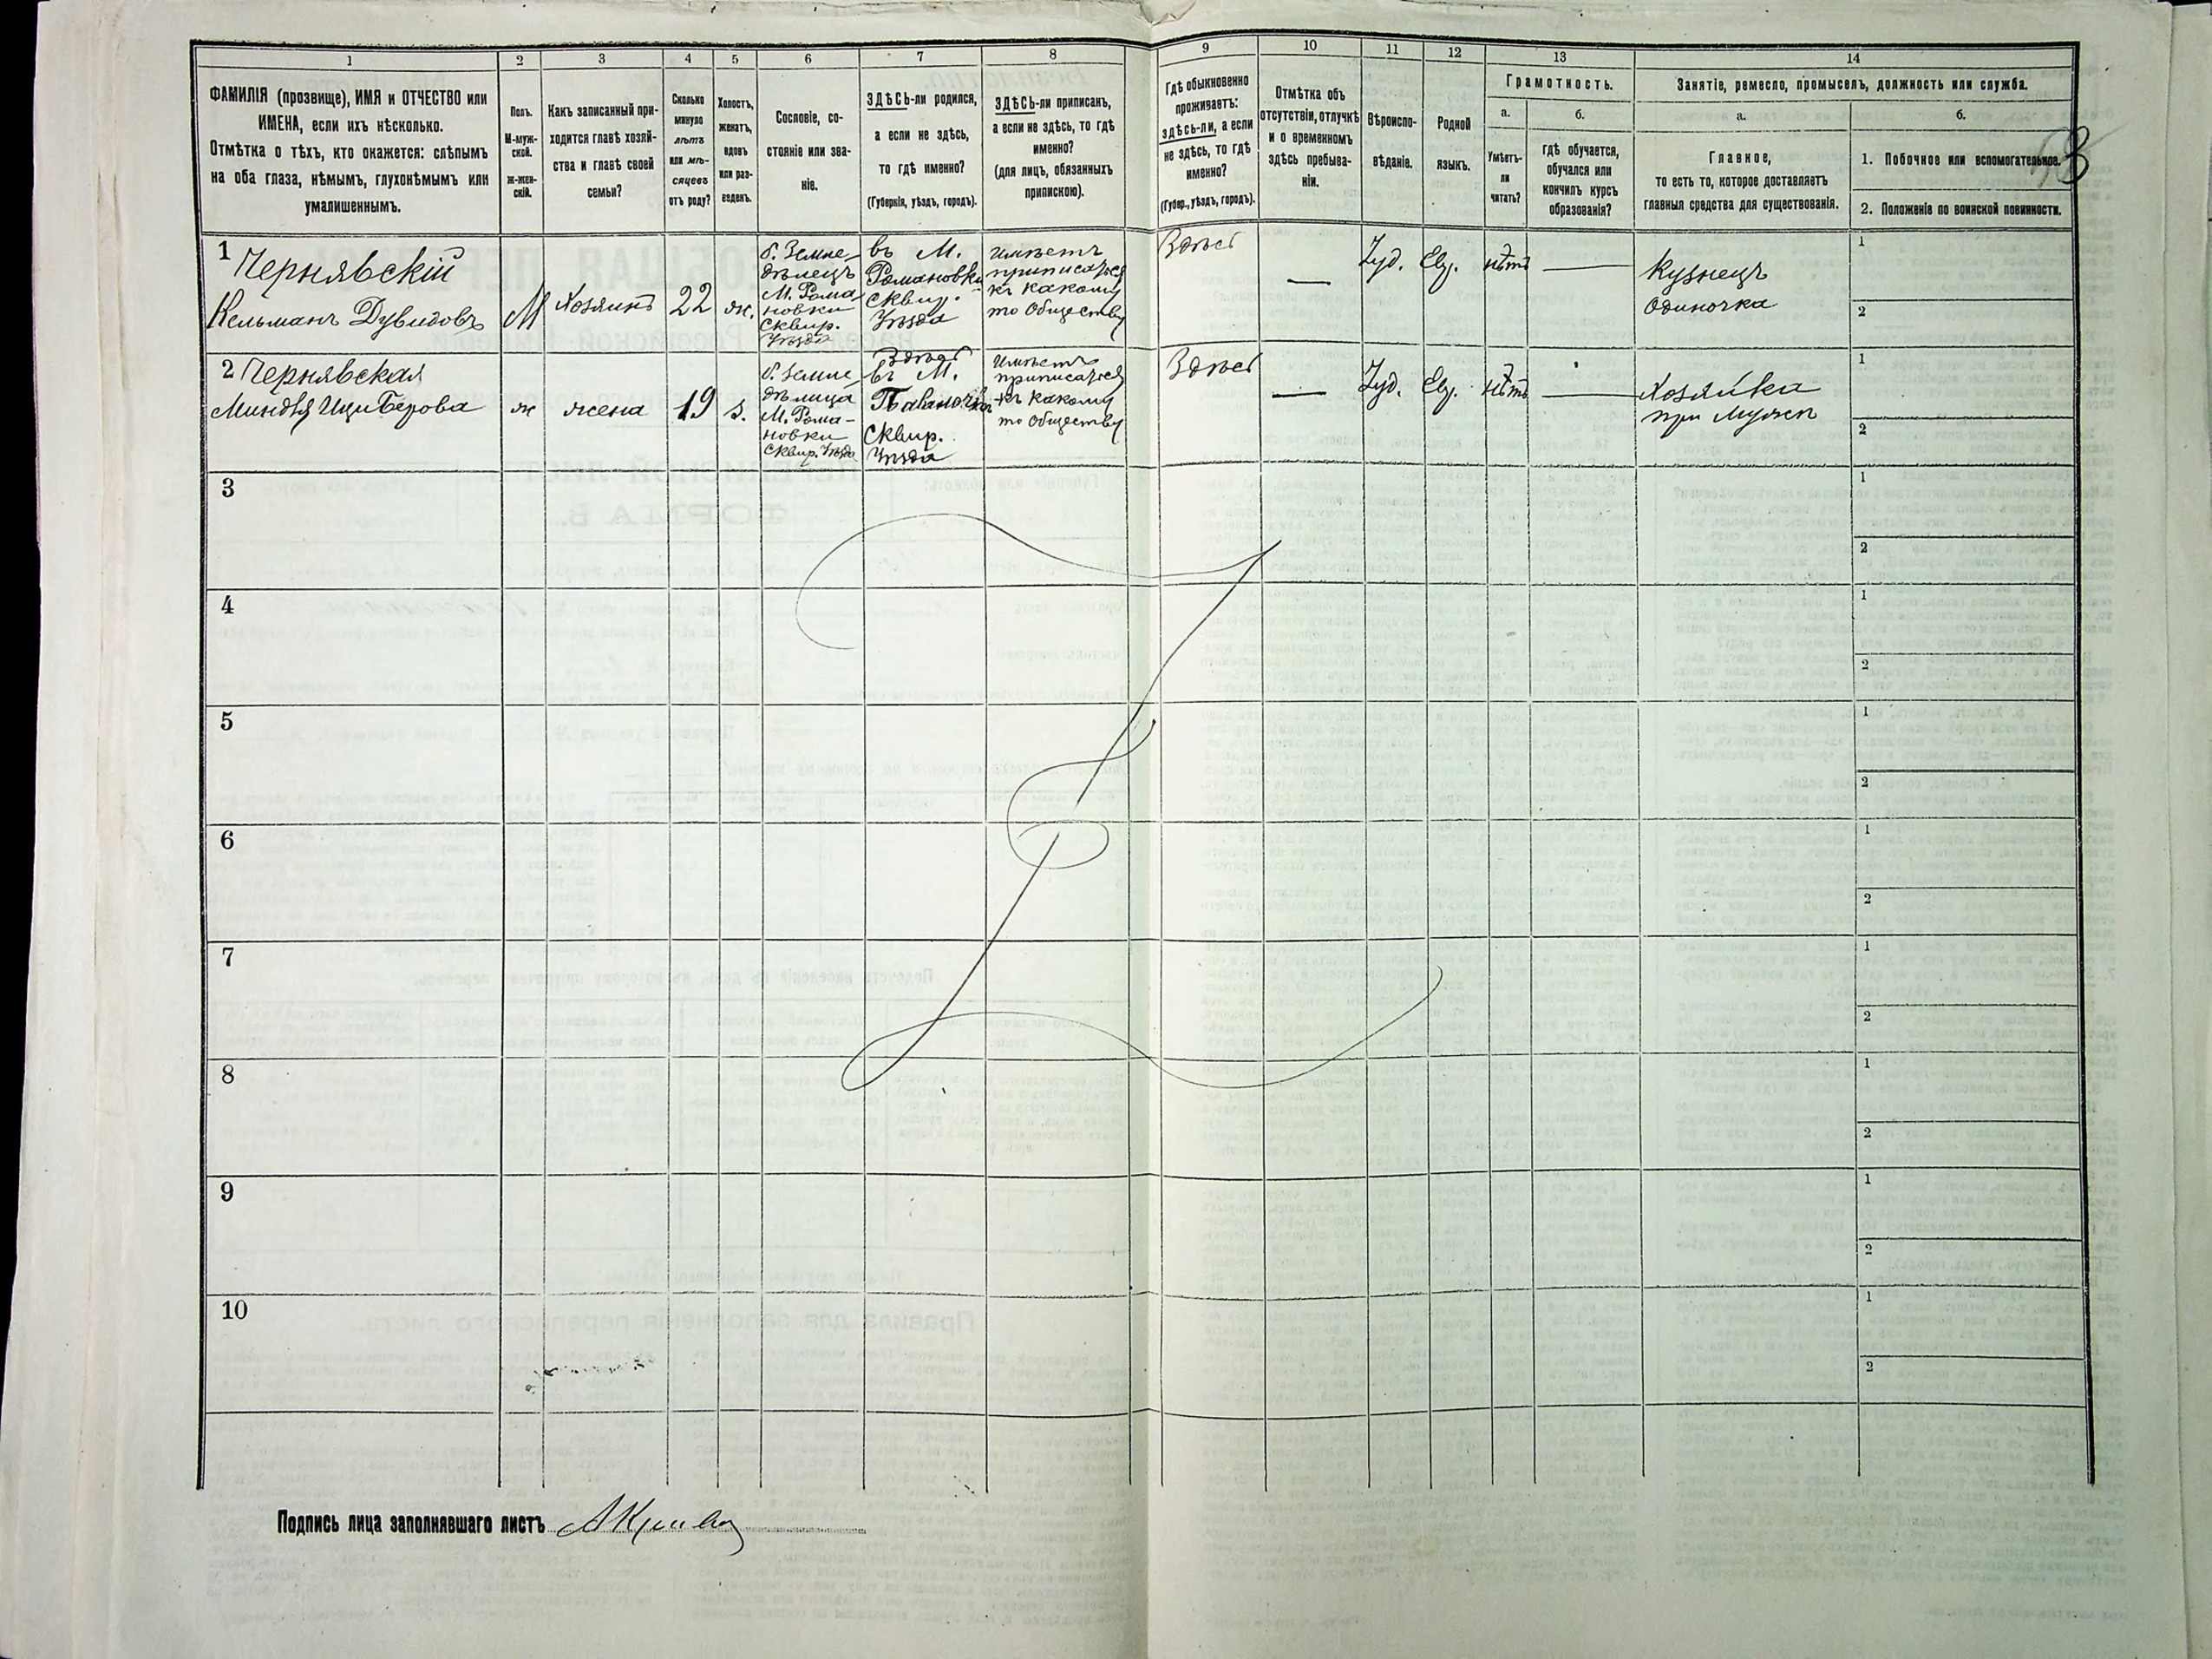 1
2
3
4
5
6
7
8
9
10
11
12
13
14
ФАМИЛІЯ (прозвище), ИМЯ и ОТЧЕСТВО или
ИМЕНА, если ихъ нѣсколько.
Отмѣтка о тѣхъ, кто окажется: слѣпымъ
на оба глаза, нѣмымъ, глухонѣмымъ или
умалишеннымъ.
Полъ.
М-муж-
ской.
Ж-жен-
скій.
Какъ записанный при-
ходится главѣ хозяй-
ства и главѣ своей
семьи?
Сколько
минуло
лѣтъ
или мѣ-
сяцевъ
отъ роду?
Холостъ,
женатъ,
вдовъ
или раз-
веденъ.
Сословіе, со-
стояніе или зва-
ніе.
ЗДѢСЬ-ли родился,
а если не здѣсь,
то гдѣ именно?
(Губернія, уѣздъ, городъ).
ЗДѢСЬ-ли приписанъ,
а если не здѣсь, то гдѣ
именно?
(для лицъ, обязанныхъ
припискою).
Гдѣ обыкновенно
проживаетъ:
здѣсь-ли, а если
не здѣсь, то гдѣ
именно?
(Губер., уѣздъ, городъ).
Отмѣтка объ
отсутствіи, отлучкѣ
и о временномъ
здѣсь пребыва-
ніи.
Вѣроиспо-
вѣданіе.
Родной
языкъ.
Грамотность.
а.
Умѣетъ-
ли
читать?
б.
гдѣ обучается,
обучался или
кончилъ курсъ
образованія?
Занятіе, ремесло, промыселъ, должность или служба.
а.
Главное,
то есть то, которое доставляетъ
главныя средства для существованія.
б.
1. Побочное или вспомогательное.
2. Положеніе по воинской повинности.
1 Чернявскій
Кельманъ Дувидовъ
М
Хозяинъ
22
ж.
б. Земле-
дѣлецъ
М. Рома-
новки
Сквир.
Уѣзда
въ М.
Романовки
Сквир.
Уѣзда
Здѣсь
Имѣетъ
приписаться
къ какому
то Обществу
Здѣсь
—
Іуд.
Евр.
нѣтъ
—
Кузнецъ
одиночка
1
2
2 Чернявская
Миндля ИциБерова
ж
жена
19
з.
б. Земле-
дѣлица
М. Рома-
новки
Сквир. Уѣзда
въ М.
Паволочь
Сквир.
Уѣзда
Имѣетъ
приписаться
къ какому
то Обществу
Здѣсь
—
Іуд.
Евр.
нѣтъ
—
Хозяйка
при Мужѣ
1
2
3
1
2
4
1
2
5
1
2
6
1
2
7
1
2
8
1
2
9
1
2
10
1
2
Подпись лица заполнявшаго листъ